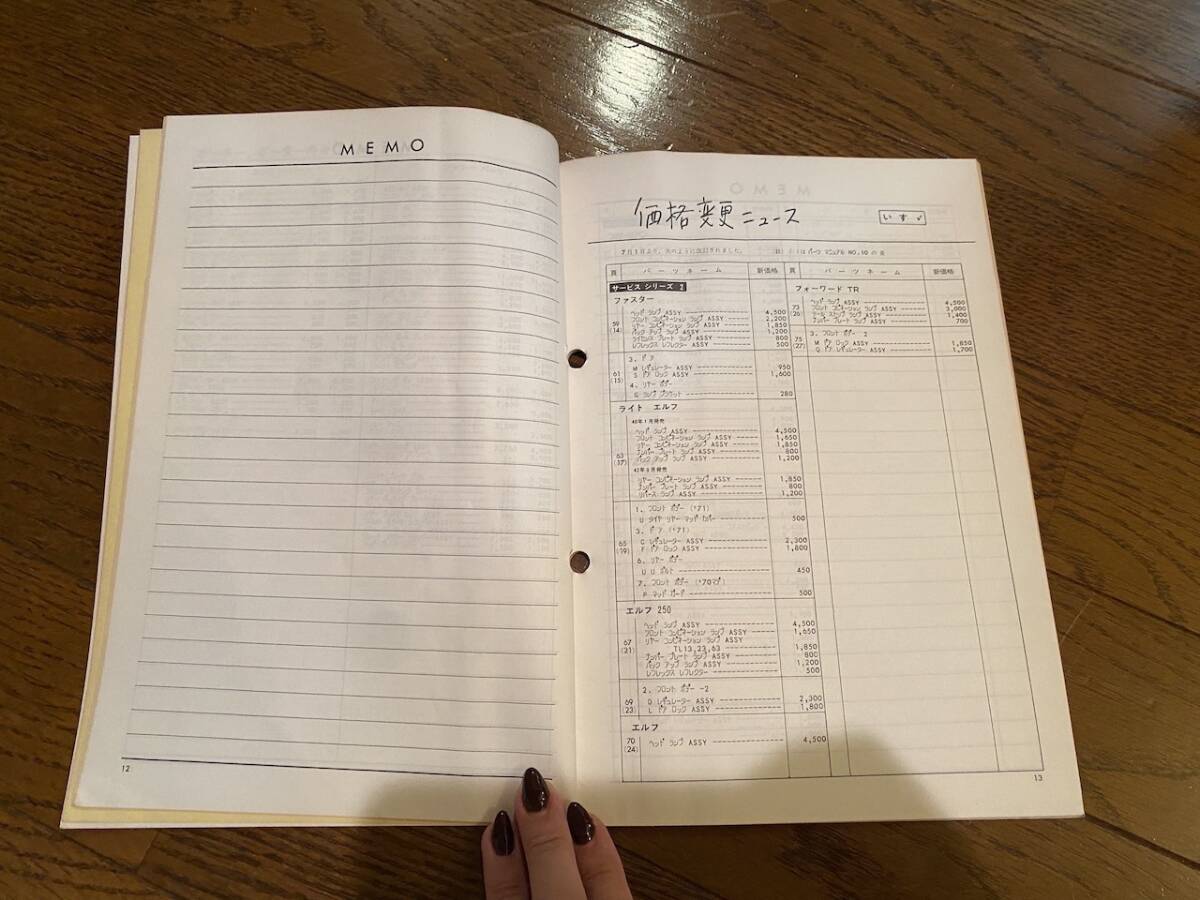 MEMO
12
価格変更ニュース
いすゞ
7月1日より、次のように改訂されました。
パーツ マニュアル NO.10 の頁
頁 パーツネーム 新価格 頁 パーツネーム 新価格
サービス シリーズ 2
ファスター
59
(14)
ヘッド ランプ ASSY 4,500
フロント コンビネーション ランプ ASSY 2,200
リヤー コンビネーション ランプ ASSY 1,850
バック アップ ランプ ASSY 1,200
ライセンス プレート ランプ ASSY 800
レフレックス レフレクター ASSY 500
61
(15)
3. ドア
M レギュレーター ASSY 950
S ドア ロック ASSY 1,600
4. リヤー ボデー
G ランプ ブラケット 280
ライト エルフ
63
(17)
ヘッド ランプ ASSY 4,500
フロント コンビネーション ランプ ASSY 1,650
リヤー コンビネーション ランプ ASSY 1,850
ナンバー プレート ランプ ASSY 800
バック アップ ランプ ASSY 1,200
リヤー コンビネーション ランプ ASSY 1,850
ナンバー プレート ランプ ASSY 800
リバース ランプ ASSY 1,200
65
(19)
1. フロント ボデー ('71)
U タイヤ リヤー マッド カバー 500
3. ドア ('71)
C レギュレーター ASSY 2,300
F ドア ロック ASSY 1,800
6. リヤー ボデー
U U ボルト 450
7. フロント ボデー ('70マデ)
P マッド ガード 500
エルフ 250
67
(21)
ヘッド ランプ ASSY 4,500
フロント コンビネーション ランプ ASSY 1,650
リヤー コンビネーション ランプ ASSY
TL13,23,63 1,850
ナンバー プレート ランプ ASSY 800
バック アップ ランプ ASSY 1,200
レフレックス レフレクター 500
69
(23)
2. フロント ボデー -2
D レギュレーター ASSY 2,300
L ドア ロック ASSY 1,800
エルフ
70
(24)
ヘッド ランプ ASSY 4,500
フォーワード TR
73
(26)
ヘッド ランプ ASSY 4,500
フロント コンビネーション ランプ ASSY 3,000
テール ストップ ランプ ASSY 1,400
ナンバー プレート ランプ ASSY 700
75
(27)
3. フロント ボデー 2
M ドア ロック ASSY 1,850
Q ドア レギュレーター ASSY 1,700
13